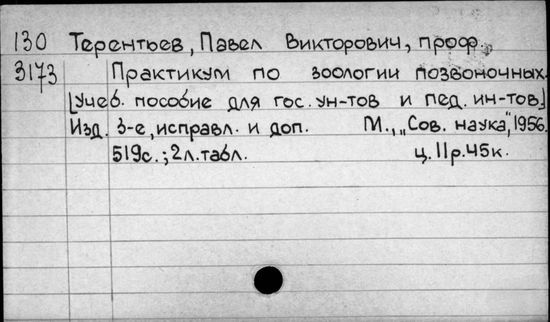 130 Терентьев, Павел Викторович, проф.
3173 Практикум по зоологии позвоночных.
[Учеб. пособие для гос. ун-тов и пед. ин-тов.]
Изд. 3-е, исправл. и доп. М., „Сов. наука", 1956.
519с.; 2л.табл. ц. 11р.45к.